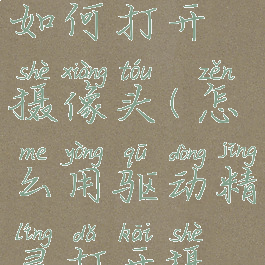 如何打开
shè xiàng tóu zěn
摄像头(怎
me yòng qū dòng jīng
么用驱动精
líng dǎ kāi shè
灵打开摄